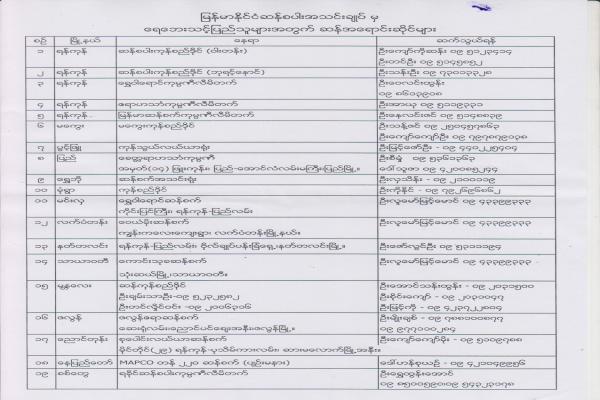 မြန်မာနိုင်ငံဆန်စပါးအသင်းချုပ် မှ
ရေဘေးသင့်ပြည်သူများအတွက် ဆန်အရောင်းဆိုင်များ
စဉ် မြို့နယ် နေရာ ဆက်သွယ်ရန်
၁ ရန်ကုန် ဆန်စပါးကုန်စည်ဒိုင် (ဝါးတန်း) ဦးကျော်ကိုဆန်း ၀၉ ၅၁၂၃၄၁၄
ဦးတင်ဦး ၀၉ ၅၀၄၅၈၅၂
၂ ရန်ကုန် ဆန်စပါးကုန်စည်ဒိုင် (ဘုရင့်နောင်) ဦးသန်းဦး ၀၉ ၇၃၀၁၃၃၂၈
၃ ရန်ကုန် ရွှေဝါရောင်ကုမ္ပဏီလီမိတက် ဦးဝေလင်းထွန်း
၀၉ ၈၆၀၃၉၀၈
၄ ရန်ကုန် ဧရာဟင်္သာကုမ္ပဏီလီမိတက် ဦးအာယု ၀၉ ၅၁၁၉၃၃၁
၅ ရန်ကုန် မြန်မာဆန်စက်ကုမ္ပဏီလီမိတက် ဦးနေလင်းဇင် ၀၉ ၅၁၄၈၈၃၉
၆ မကွေး မကွေးကုန်စည်ဒိုင် ဦးသန့်ဇင် ၀၉ ၂၅၀၄၅၇၈၆၃
ဦးကျော်ကျော်ဦး ၀၉ ၇၉၇၈၇၉၀၃၈
၇ ပွင့်ဖြူ ကုန်သွယ်လယ်ယာရုံး ဦးမြင့်ဇော်ဦး - ၀၉ ၄၄၀၂၂၅၄၀၄
၈ ပြည် ခေတ္တရာဟင်္သာကုမ္ပဏီ ဦးစိန် ၀၉ ၅၃၆၁၃၆၃
အမှတ်(၁၄) ဖြူးကုန်း၊ ပြည်-အောင်လံလမ်းမကြီးပြည်မြို့။ ဒေါ်သူဇာ ၀၉ ၄၂၀၀၈၅၂၄၄
၉ ရွှေဘို ဆန်စက်အသင်းရုံး ဦးလှသိန်း - ၀၉ ၂၁၀၀၁၁၉
၁၀ မုံရွာ ကုန်စည်ဒိုင် ဦးကိုနိုင် - ၀၉ ၇၉၂၆၉၆၈၆၂
၁၁ မင်းလှ ရွှေဝါရောင်ဆန်စက် ဦးလူမော်မြင့်မောင် ၀၉ ၄၃၃၉၉၃၃၃
ကိုင်းပြင်ကြီး၊ ရန်ကုန်-ပြည်လမ်း။
၁၂ လက်ပံတန်း ဝေယံမိုးဆန်စက် ဦးလူမော်မြင့်မောင် ၀၉ ၄၃၃၉၉၃၃၃
ကျွန်းကလေးကျေးရွာ၊ လက်ပံတန်းမြို့နယ်။
၁၃ နတ်တလင်း ရန်ကုန်-ပြည်လမ်း၊ ဗိုလ်ချုပ်ပန်းခြံရှေ့၊ နတ်တလင်းမြို့။ ဦးဇော်လွင်ဦး ၀၉ ၅၃၁၁၁၉၄
၁၄ သာယာဝတီ ကောင်းသုခဆန်စက် ဦးလူမော်မြင့်မောင် ၀၉ ၄၃၃၉၉၃၃၃
သုံးဆယ်မြို့၊ သာယာဝတီ။
၁၅ မန္တလေး ဆန်ကုန်စည်ဒိုင် ဦးအောင်သန်းထွန်း - ၀၉ ၂၀၃၁၅၀၀
ဦးချမ်းသာဦး-၀၉ ၅၂၃၂၅၈၂ ဦးစိုင်းကျော် - ၀၉ ၂၀၃၀၀၄၇
ဦးတင်လှိုင်ဝင်း -၀၉ ၂၀၀၆၃၁၆ ဦးမြင့်ကို - ၀၉ ၄၂၃၇၂၂၈၁၄
၁၆ ဇလွန် ဇလွန်ဧရာဆန်စက် ဦးမျိုးချစ် - ၀၉ ၇၈၈၁၀၀၈၇၇
ဆေးရုံလမ်း၊ညောင်ပင်ဈေးအနီး၊ဇလွန်မြို့။ ၀၉ ၉၇၇၁၀၀၂၈၄
၁၇ ညောင်တုန်း စုပေါင်းလယ်ယာဆန်စက် ဦးကျော်ကျော်မိုး - ၀၉ ၅၁၀၉၇၈၈
မိုင်တိုင်(၂၉) ရန်ကုန်-ပုသိမ်ကားလမ်း၊ ဆားမလောက်မြို့အနီး။
၁၈ နေပြည်တော် MAPCO တန် ၂၂၀ ဆန်စက် (ပျဉ်းမနား) ဒေါ်ဟန်စုယဉ် - ၀၉ ၄၂၁၀၄၉၉၅၆
၁၉ စစ်တွေ ရခိုင်ဆန်စပါးကုမ္ပဏီလီမိတက် ဦးရွှေထွန်းအောင်
၀၉ ၈၅၀၀၅၉၀၊၀၉ ၅၄၃၂၃၁၇၈